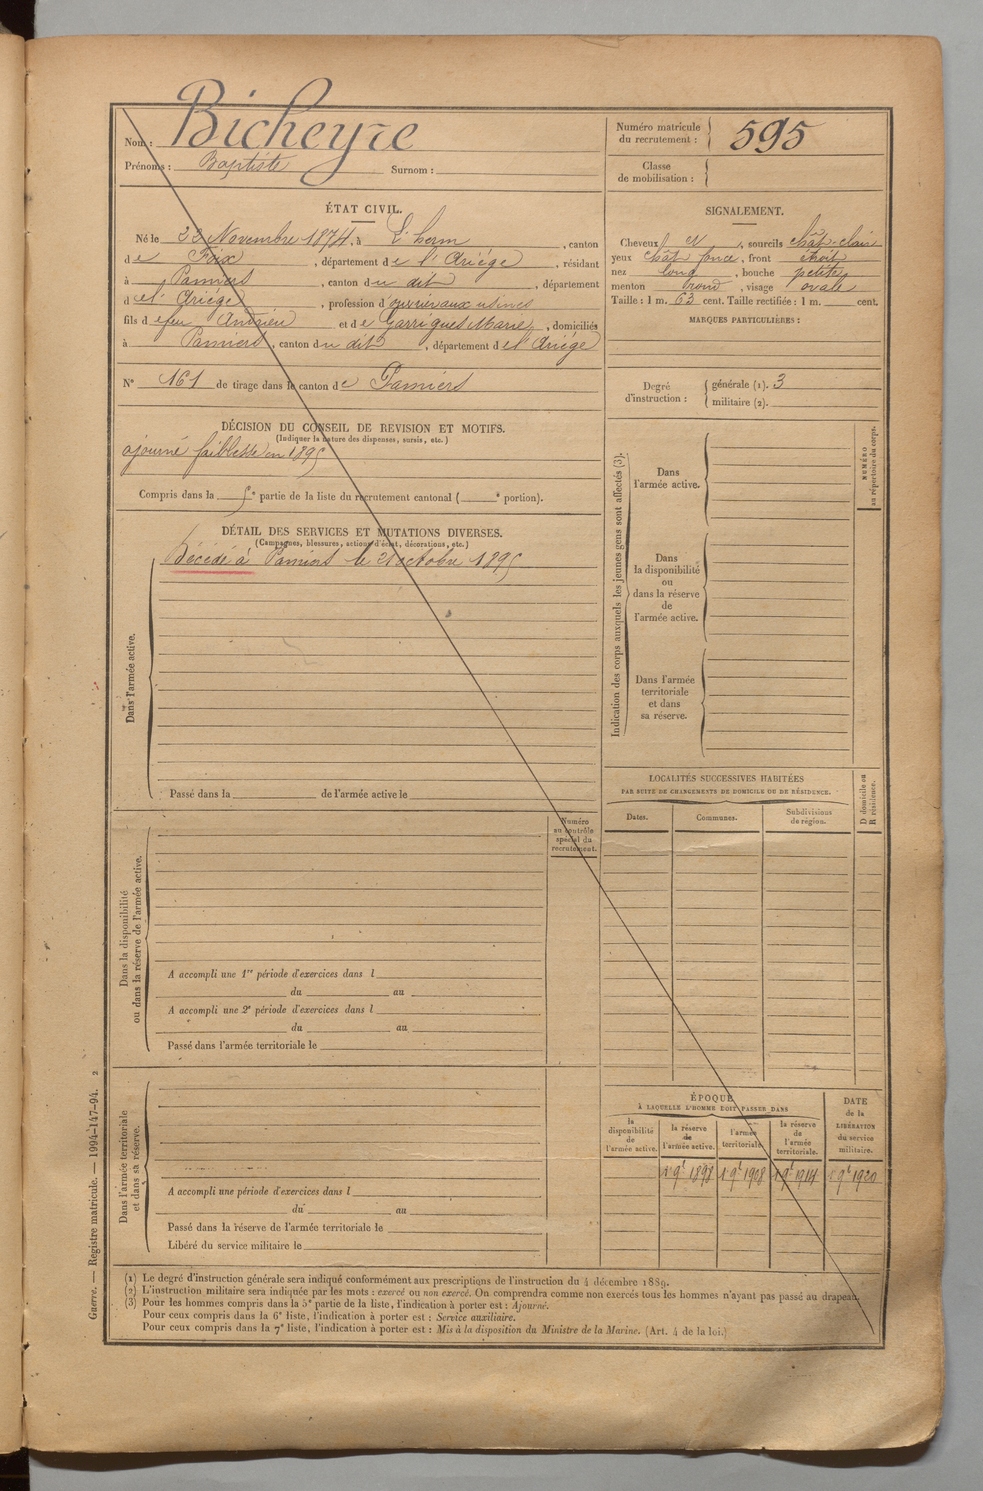 Nom : Bicheyre
Prénoms : Baptiste Surnom :
Numéro matricule
du recrutement : 595
Classe
de mobilisation :
ÉTAT CIVIL.
Né le 23 Novembre 1874, à L'herm, canton
de Foix, département de l'Ariége, résidant
à Pamiers, canton du dit, département
de l'Ariége, profession d'ouvrier aux usines
fils de feu Andrieu et de Garrigues Marie, domiciliés
à Pamiers, canton du dit, département de l'Ariége
N° 161 de tirage dans le canton de Pamiers
SIGNALEMENT.
Cheveux N, sourcils chât-clair
yeux chât foncé, front étroit
nez long, bouche petite
menton rond, visage ovale
Taille : 1 m. 63 cent. Taille rectifiée : 1 m. cent.
MARQUES PARTICULIÈRES :
Degré
d'instruction :
générale (1). 3
militaire (2).
DÉCISION DU CONSEIL DE REVISION ET MOTIFS.
(Indiquer la nature des dispenses, sursis, etc.)
ajourné faiblesse en 1895
Compris dans la 5e partie de la liste du recrutement cantonal ( e portion).
DÉTAIL DES SERVICES ET MUTATIONS DIVERSES.
(Campagnes, blessures, actions d'éclat, décorations, etc.)
Décédé à Pamiers le 21 octobre 1895
Dans l'armée active.
Passé dans la de l'armée active le
Indication des corps auxquels les jeunes gens sont affectés (3).
Dans
l'armée active.
Dans
la disponibilité
ou
dans la réserve
de
l'armée active.
Dans l'armée
territoriale
et dans
sa réserve.
NUMÉRO
au répertoire du corps.
LOCALITÉS SUCCESSIVES HABITÉES
PAR SUITE DE CHANGEMENTS DE DOMICILE OU DE RÉSIDENCE.
Dates.
Communes.
Subdivisions
de région.
D domicile ou
R résidence.
Numéro
au contrôle
spécial du
recrutement.
Dans la disponibilité
ou dans la réserve de l'armée active.
A accompli une 1re période d'exercices dans l
du au
A accompli une 2e période d'exercices dans l
du au
Passé dans l'armée territoriale le
Dans l'armée territoriale
et dans sa réserve.
A accompli une période d'exercices dans l
du au
Passé dans la réserve de l'armée territoriale le
Libéré du service militaire le
ÉPOQUE
À LAQUELLE L'HOMME DOIT PASSER DANS
la
disponibilité
de
l'armée active.
la réserve
de
l'armée active.
l'armée
territoriale.
la réserve
de
l'armée
territoriale.
DATE
de la
LIBÉRATION
du service
militaire.
1 9e 1898 1 9e 1908 1 9e 1914 1 9e 1920
(1) Le degré d'instruction générale sera indiqué conformément aux prescriptions de l'instruction du 4 décembre 1889.
(2) L'instruction militaire sera indiquée par les mots : exercé ou non exercé. On comprendra comme non exercés tous les hommes n'ayant pas passé au drapeau.
(3) Pour les hommes compris dans la 5e partie de la liste, l'indication à porter est : Ajourné.
Pour ceux compris dans la 6e liste, l'indication à porter est : Service auxiliaire.
Pour ceux compris dans la 7e liste, l'indication à porter est : Mis à la disposition du Ministre de la Marine. (Art. 4 de la loi.)
Guerre. — Registre matricule. — 1994-147-94. 2